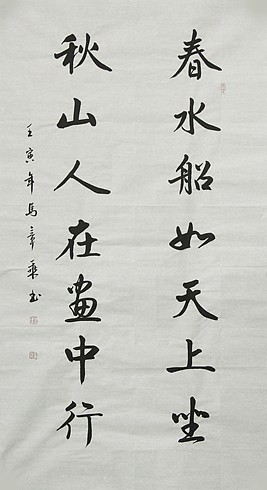 春水船如天上坐
秋山人在畫中行
壬寅年马章乘书